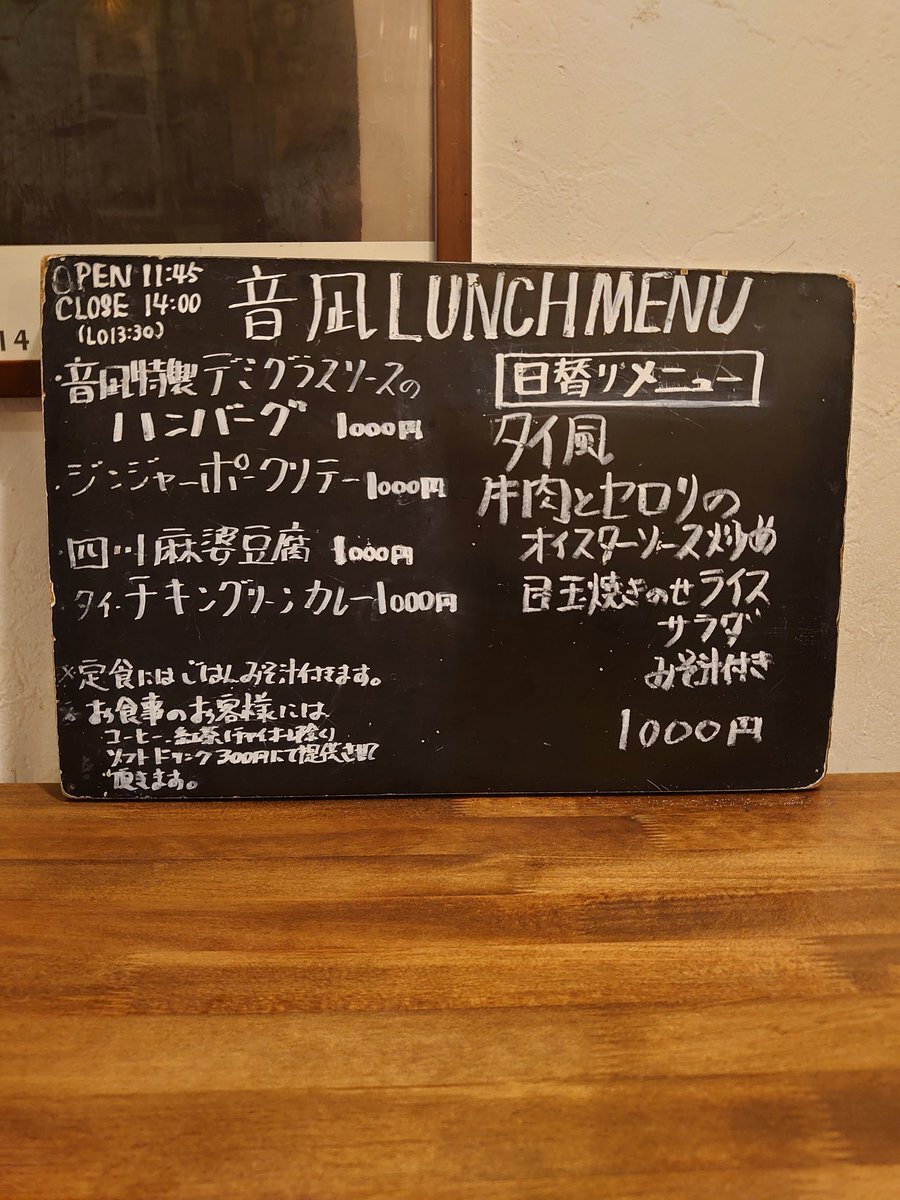 OPEN 11:45
CLOSE 14:00
(LO13:30)
音凪 LUNCH MENU
・音凪特製デミグラスソースの
ハンバーグ 1000円
・ジンジャーポークソテー 1000円
・四川麻婆豆腐 1000円
・タイ・チキングリーンカレー 1000円
※定食にはごはんみそ汁付きます。
※お食事のお客様には
コーヒー、紅茶(チャイ・オレ除く)
ソフトドリンク300円にて提供させて
頂きます。
日替りメニュー
タイ風
牛肉とセロリの
オイスターソース炒め
目玉焼きのせライス
サラダ
みそ汁付き
1000円
14